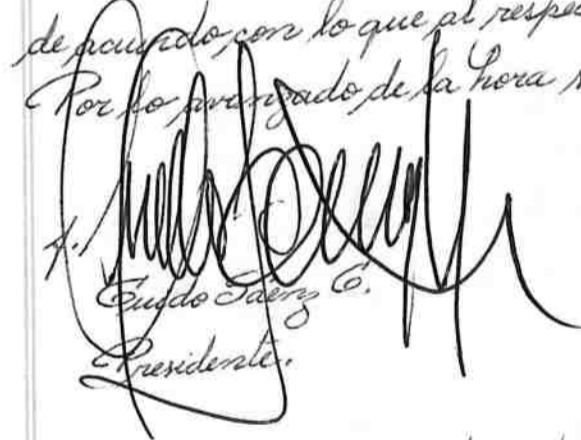 de acuerdo, con lo que al respec
Por lo avanzado de la hora s
f.
Guido Sáenz G.
Presidente.